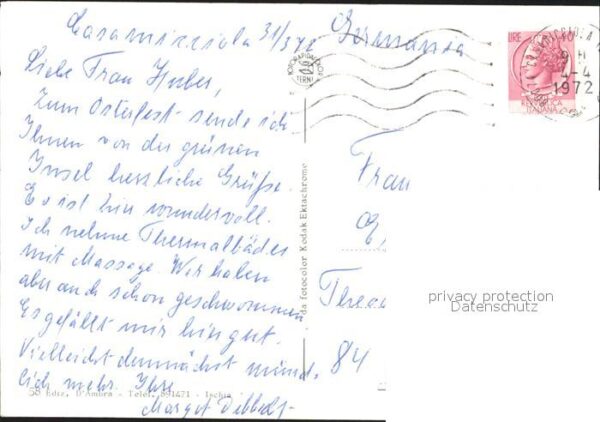 Casamicciola 31/3 72
Germania
Liebe Frau Huber,
Zum Osterfest sende ich
Ihnen von der grünen
Insel herzliche Grüße.
Es ist hier wundervoll.
Ich nehme Thermalbäder
mit Massage. Wir haben
aber auch schon geschwommen
Es gefällt mir hier gut.
Vielleicht demnächst münd-
lich mehr. Ihre
Margot
58 Ediz. D'Ambra - Telef. 891471 - Ischia
da fotocolor Kodak Ektachrome
LIRE
REPUBBLICA
ITALIANA
4-4
1972
TERNI
Frau
84
privacy protection
Datenschutz